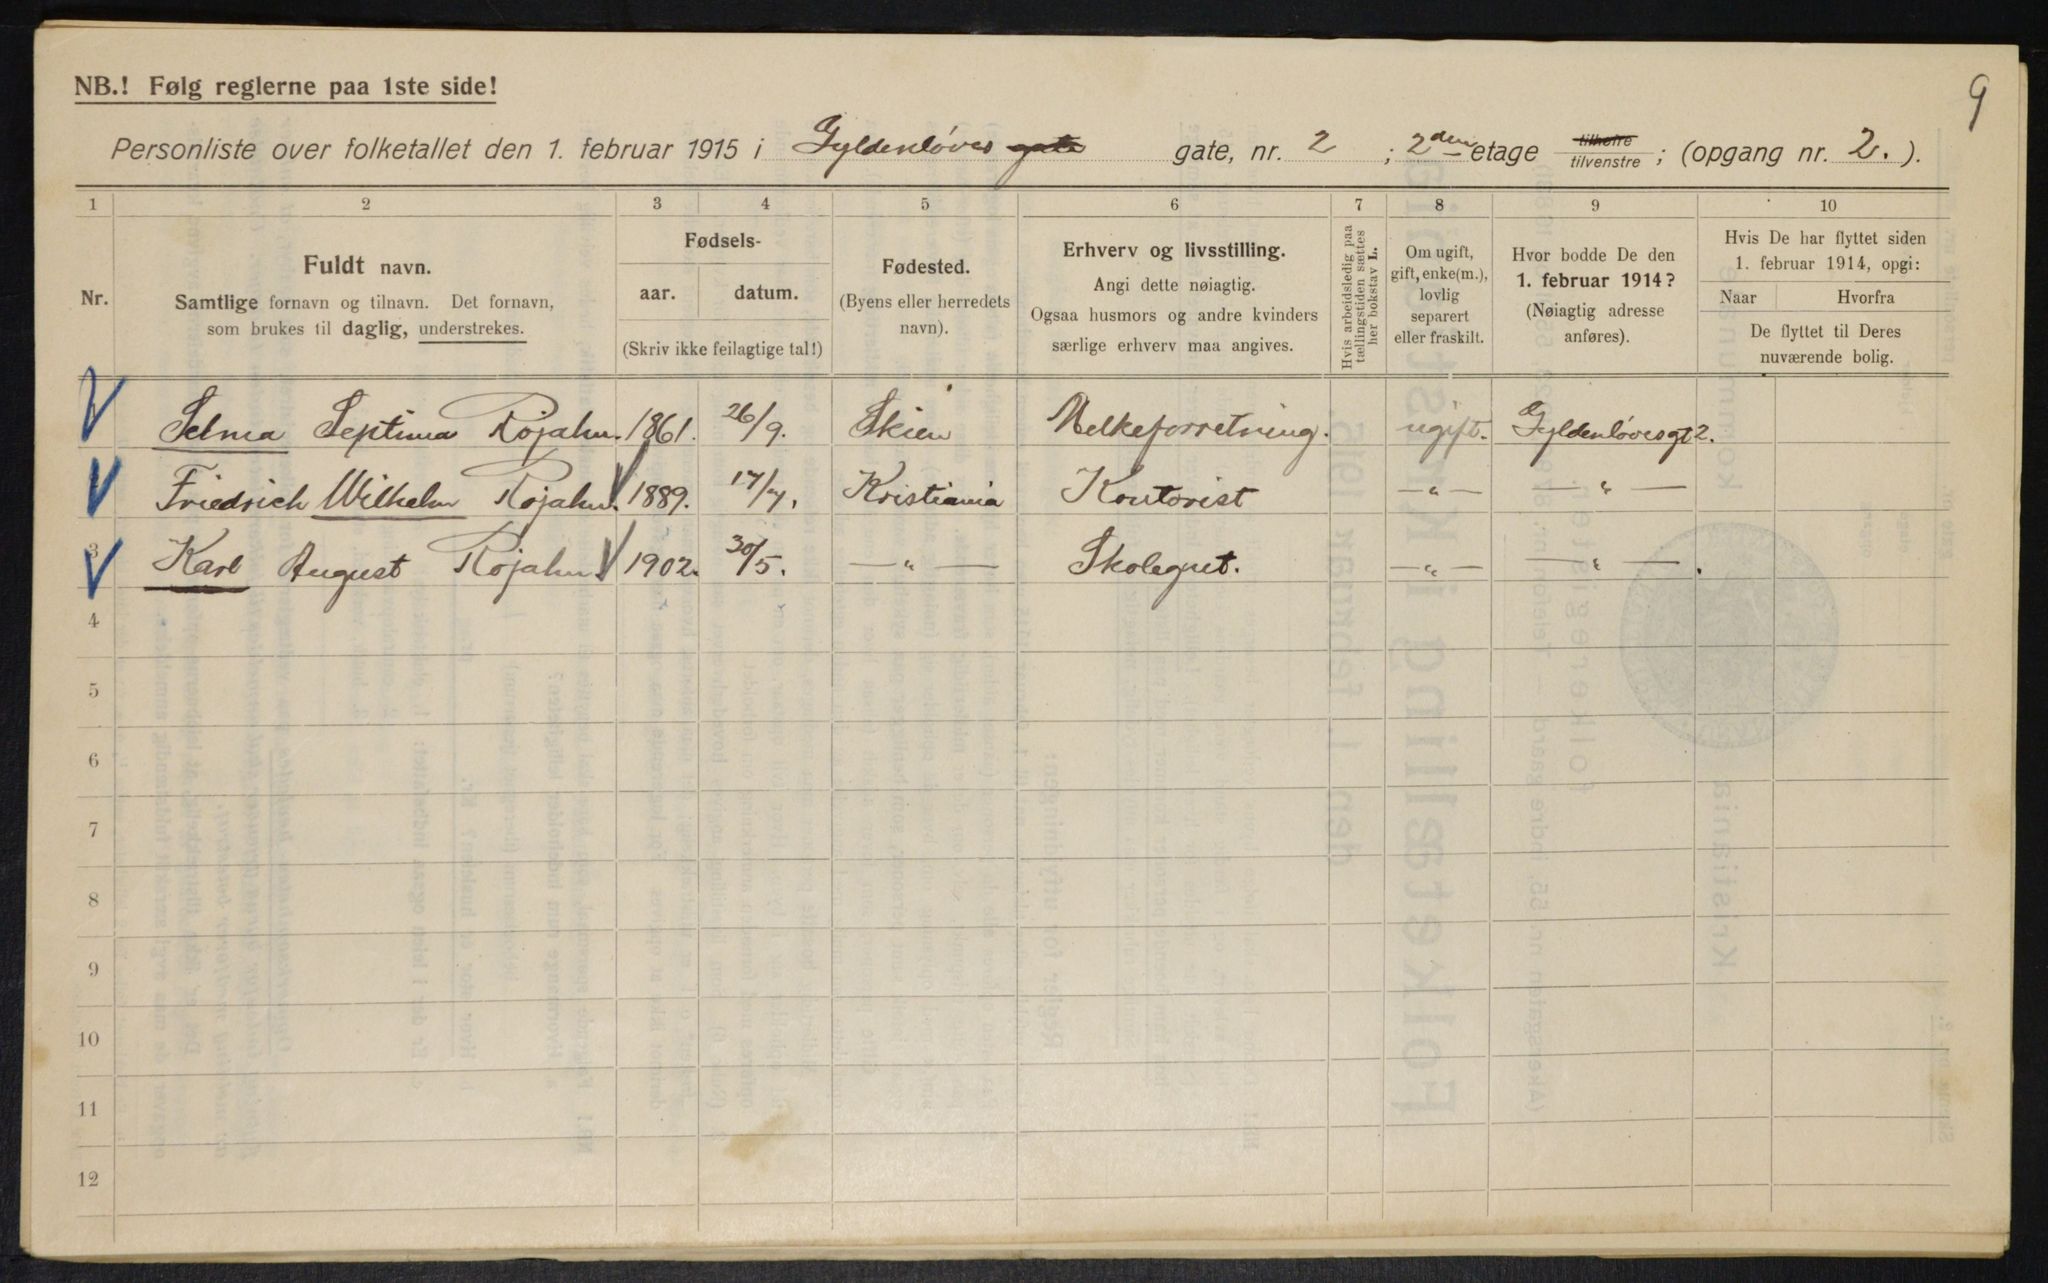 9
NB.! Følg reglerne paa 1ste side!
Personliste over folketallet den 1. februar 1915 i Gyldenløves gate gate, nr. 2 ; 2den etage tilhøire tilvenstre ; (opgang nr. 2. ).
1 2 3 4 5 6 7 8 9 10
Nr.
Fuldt navn.
Samtlige fornavn og tilnavn. Det fornavn,
som brukes til daglig, understrekes.
Fødsels-
aar. datum.
(Skriv ikke feilagtige tal!)
Fødested.
(Byens eller herredets
navn).
Erhverv og livsstilling.
Angi dette nøiagtig.
Ogsaa husmors og andre kvinders
særlige erhverv maa angives.
Hvis arbeidsledig paa
tællingstiden sættes
her bokstav L.
Om ugift,
gift, enke(m.),
lovlig
separert
eller fraskilt.
Hvor bodde De den
1. februar 1914?
(Nøiagtig adresse
anføres).
Hvis De har flyttet siden
1. februar 1914, opgi:
Naar Hvorfra
De flyttet til Deres
nuværende bolig.
Selma Septima Rojahn. 1861. 26/9. Skien Melkeforretning. ugift. Gyldenløvesgt 2.
Friedrich Wilhelm Rojahn. 1889. 17/7. Kristiania Kontorist — „ — — „ —
3 Karl August Rojahn. 1902. 30/5. — „ — Skolegut. — „ — — „ — .
4
5
6
7
8
9
10
11
12